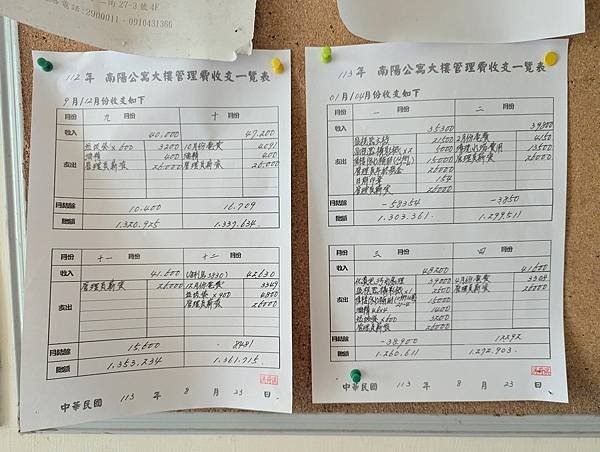 街27-3號4F
電話:2900011·0910431366
112年 南陽公寓大樓管理費收支一覽表
9月/12月份收支如下
月份 九 月份 十 月份
收入 40,000 47,200
支出 垃圾袋×600 3200 10月份電費 4091
酒精 400 酒精 400
管理員薪資 26000 管理員薪資 26000
月結餘 10,400 16,709
總額 1,320,925 1,337,634
月份 十一 月份 十二 月份
收入 41,600 (利息3830) 42630
支出 管理員薪資 26000 12月份電費 3349
垃圾袋×900 4800
管理員薪資 26000
月結餘 15,600 8481
總額 1,353,234 1,361,715
中華民國 113 年 8 月 23 日
113年 南陽公寓大樓管理費收支一覽表
01月/04月份收支如下
月份 一 月份 二 月份
收入 35300 39800
支出 21500 2月份電費 4150
5000 13500
15000 管理員薪資 26000
管理員年終獎金 26000
154
管理員薪資 26000
月結餘 -58354 -3850
總額 1,303,361 1,299,511
月份 三 月份 四 月份
收入 48200 41600
支出 39000 4月份電費 3308
2500 管理員薪資 26000
15000
1400
垃圾袋×600 3200
管理員薪資 26000
月結餘 -38,900 12292
總額 1,260,611 1,272,903
中華民國 113 年 8 月 23 日